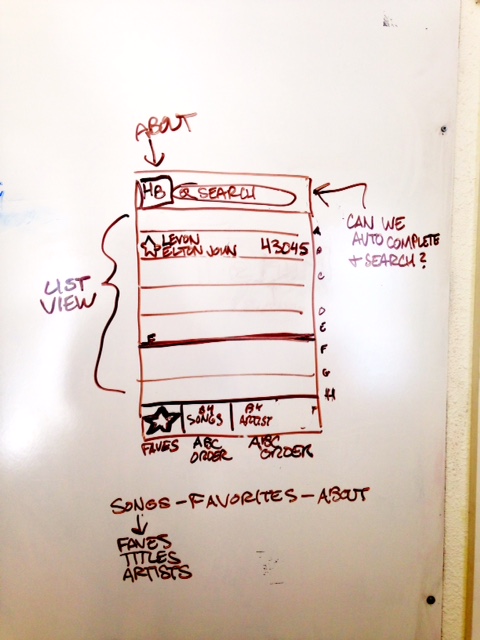 ABOUT
HB SEARCH
CAN WE
AUTO COMPLETE
+ SEARCH?
LIST
VIEW
A
LEVON
ELTON JOHN 43045
B
C
D
E
E
F
G
H
BY
SONGS
BY
ARTIST
FAVES
ABC
ORDER
ABC
ORDER
SONGS - FAVORITES - ABOUT
FAVES
TITLES
ARTISTS